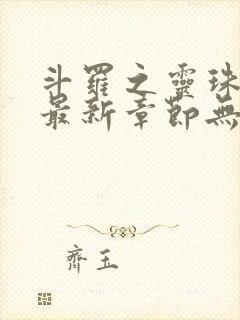 斗羅之靈珠
最新章節無
齊玉